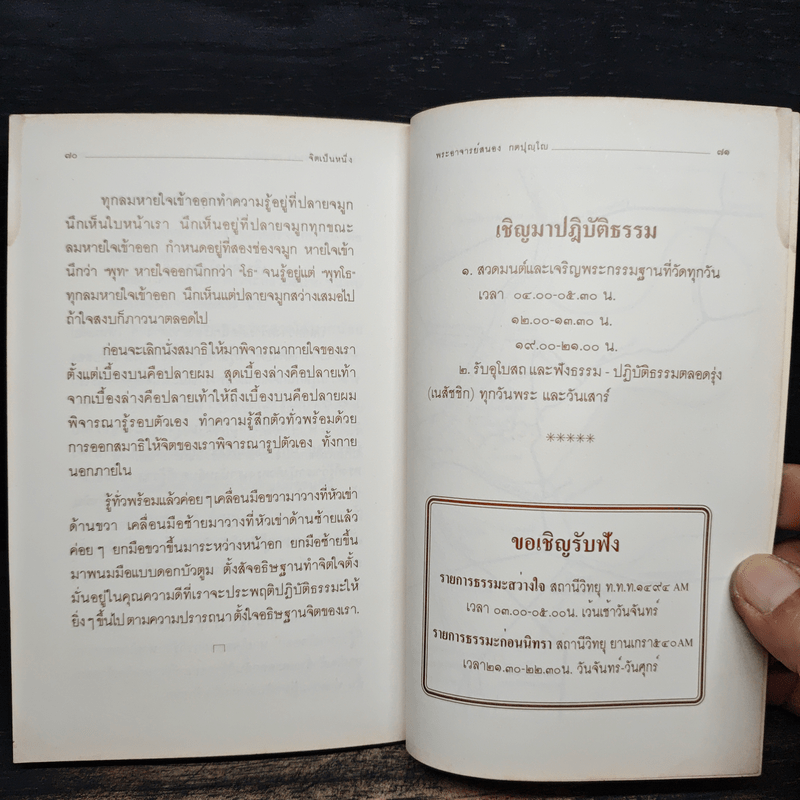 ๗๐ จิตเป็นหนึ่ง
ทุกลมหายใจเข้าออกทำความรู้อยู่ที่ปลายจมูก
นึกเห็นใบหน้าเรา นึกเห็นอยู่ที่ปลายจมูกทุกขณะ
ลมหายใจเข้าออก กำหนดอยู่ที่สองช่องจมูก หายใจเข้า
นึกว่า "พุท" หายใจออกนึกกว่า "โธ" จนรู้อยู่แต่ "พุทโธ"
ทุกลมหายใจเข้าออก นึกเห็นแต่ปลายจมูกสว่างเสมอไป
ถ้าใจสงบก็ภาวนาตลอดไป
ก่อนจะเลิกนั่งสมาธิให้มาพิจารณากายใจของเรา
ตั้งแต่เบื้องบนคือปลายผม สุดเบื้องล่างคือปลายเท้า
จากเบื้องล่างคือปลายเท้าให้ถึงเบื้องบนคือปลายผม
พิจารณารู้รอบตัวเอง ทำความรู้สึกตัวทั่วพร้อมด้วย
การออกสมาธิให้จิตของเราพิจารณารูปตัวเอง ทั้งกาย
นอกภายใน
รู้ทั่วพร้อมแล้วค่อยๆเคลื่อนมือขวามาวางที่หัวเข่า
ด้านขวา เคลื่อนมือซ้ายมาวางที่หัวเข่าด้านซ้ายแล้ว
ค่อยๆ ยกมือขวาขึ้นมาระหว่างหน้าอก ยกมือซ้ายขึ้น
มาพนมมือแบบดอกบัวตูม ตั้งสัจอธิษฐานทำจิตใจตั้ง
มั่นอยู่ในคุณความดีที่เราจะประพฤติปฏิบัติธรรมะให้
ยิ่งๆขึ้นไป ตามความปรารถนาตั้งใจอธิษฐานจิตของเรา.
พระอาจารย์สนอง กตปุญฺโญ ๗๑
เชิญมาปฏิบัติธรรม
๑. สวดมนต์และเจริญพระกรรมฐานที่วัดทุกวัน
เวลา ๐๔.๐๐-๐๕.๓๐ น.
๑๒.๐๐-๑๓.๓๐ น.
๑๙.๐๐-๒๑.๐๐ น.
๒. รับอุโบสถ และฟังธรรม - ปฏิบัติธรรมตลอดรุ่ง
(เนสัชชิก) ทุกวันพระ และวันเสาร์
*****
ขอเชิญรับฟัง
รายการธรรมะสว่างใจ สถานีวิทยุ ท.ท.ท.๑๔๙๔ AM
เวลา ๐๓.๐๐-๐๕.๐๐น. เว้นเช้าวันจันทร์
รายการธรรมะก่อนนิทรา สถานีวิทยุ ยานเกราะ๕๔๐AM
เวลา๒๑.๓๐-๒๒.๓๐น. วันจันทร์-วันศุกร์